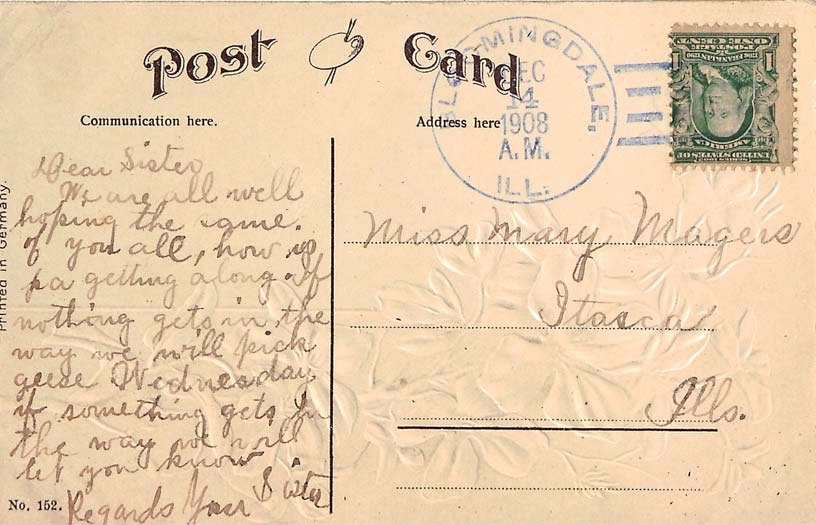 Post Card
Communication here.
Address here
BLOOMINGDALE,
DEC
14
1908
A.M.
ILL.
ONE CENT
POSTAGE
1706 FRANKLIN 1790
1 1
AMERICA
UNITED STATES OF
SERIES 1902
Dear Sister
We are all well
hoping the same.
of you all, how is
pa getting along. if
nothing gets in the
way we will pick
geese Wednesday
if something gets in
the way we will
let you know
Regards Your Sister
Miss Mary Magers
Itasca
Ills.
Printed in Germany.
No. 152.